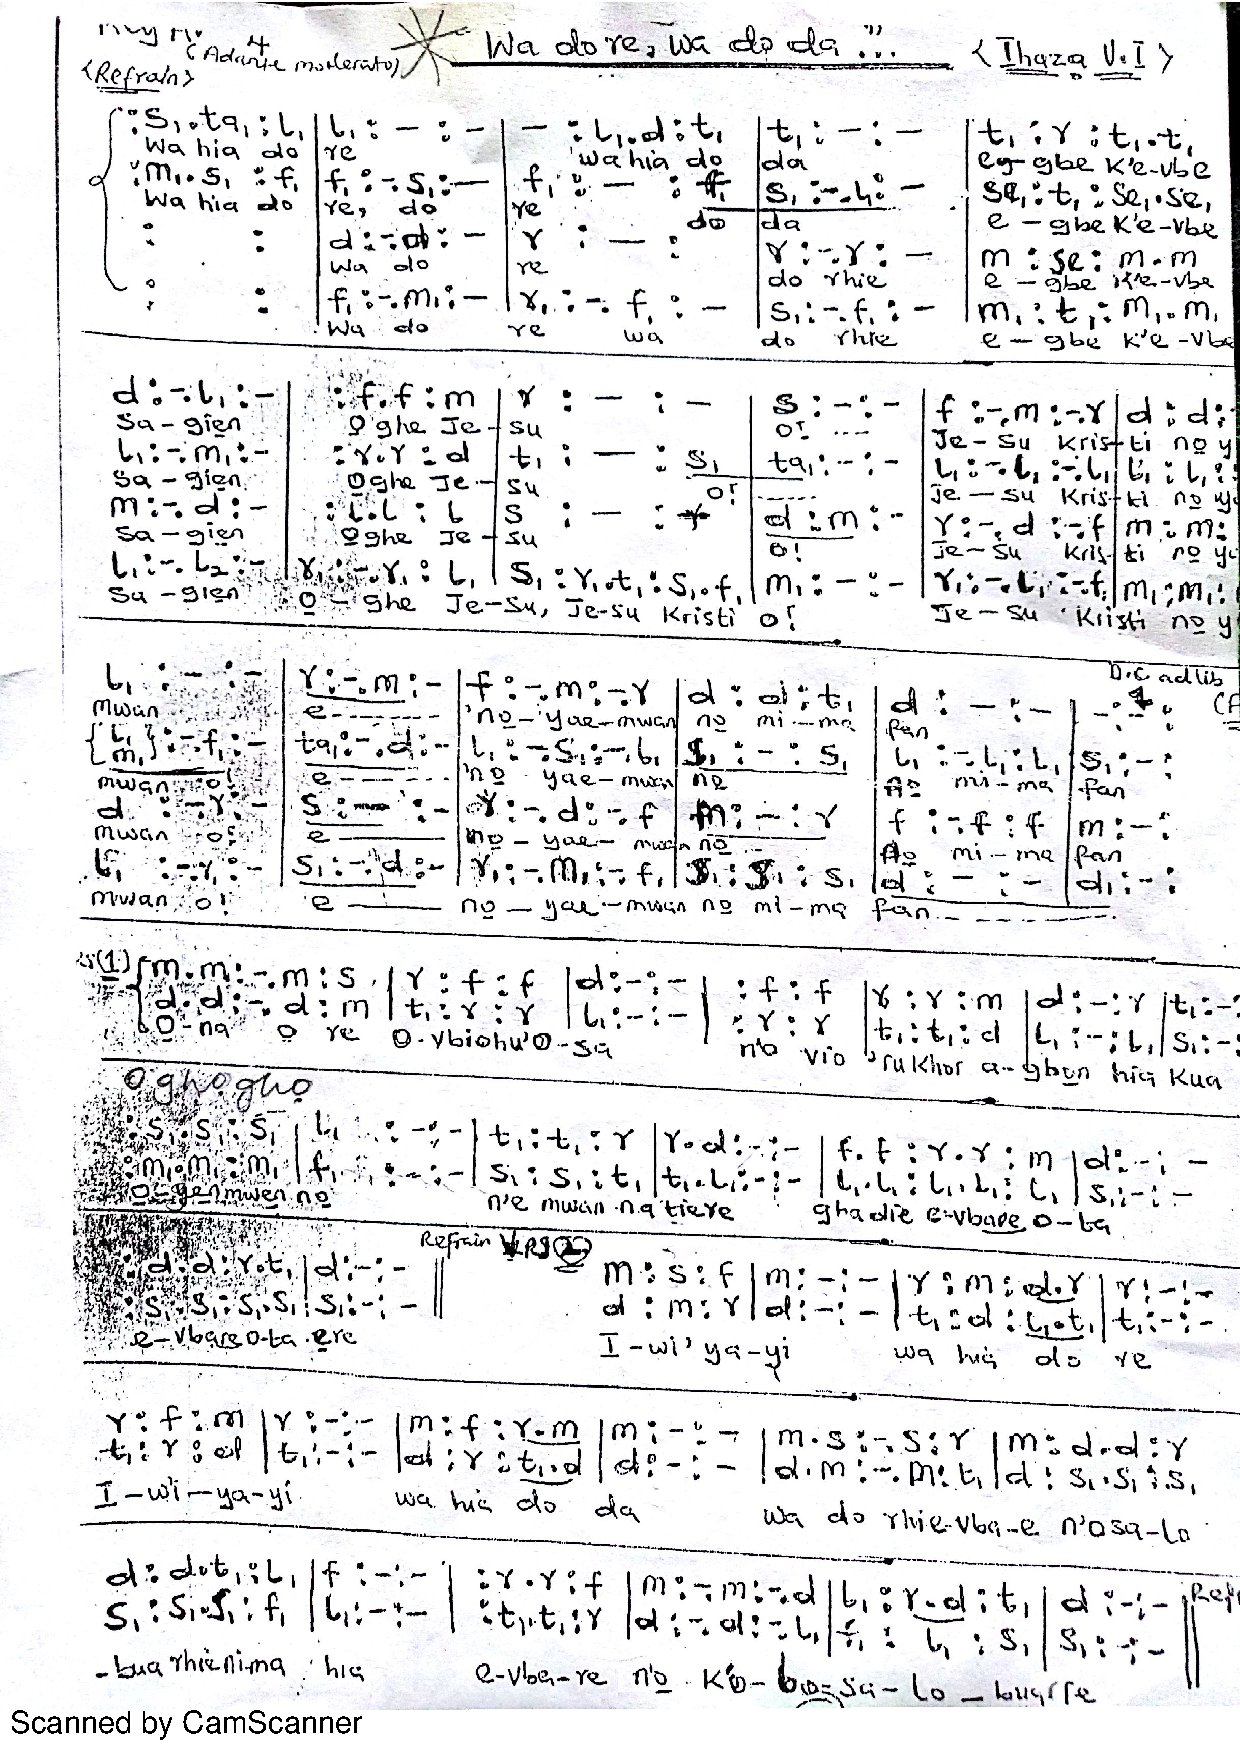 (Adante moderato)
Wa do re, wa do da "...
<Ihaza V.I>
<Refrain>
:s₁.ta₁:l₁|l₁:—:—|—:l₁.d:t₁|t₁:—:—|t₁:r:t₁.t₁
Wa hia do re wa hia do da e-gbe k'e-vbe
:m₁.s₁:f₁|f₁:-.s₁:—|f₁:—:f₁|s₁:-.l₁:—|se₁:t₁:se₁.se₁
Wa hia do re, do re do da e-gbe k'e-vbe
: :|d:-.d:—|r:—:|r:-.r:—|m:se:m.m
wa do re do rhie e-gbe k'e-vbe
: :|f₁:-.m₁:—|r₁:-.f₁:—|s₁:-.f₁:—|m₁:t₁:m₁.m₁
wa do re wa do rhie e-gbe k'e-vbe
d:-.l₁:—|:f.f:m|r:—:—|s:—:—|f:-.m:-.r|d:d:
Sa-gien Oghe Je-su O! .... Je-su Kris-ti no y
l₁:-.m₁:—|:r.r:d|t₁:—:s₁|ta₁:—:—|l₁:-.l₁:-.l₁|l₁:l₁:
Sa-gien Oghe Je-su O! ...... Je-su Kris-ti no y
m:-.d:—|:l.l:l|s:—:r|d:m:—|r:-.d:-.f|m:m:
Sa-gien Oghe Je-su O! Je-su Kris-ti no y
l₁:-.l₂:—|r₁:-.r₁:l₁|s₁:r₁.t₁:s₁.f₁|m₁:—:—|r₁:-.l₁:-.f₁|m₁:m₁:
Sa-gien O-ghe Je-su, Je-su Kristi O! Je-su Kristi no y
D.C ad lib
l₁:—:—|r:-.m:—|f:-.m:-.r|d:d:t₁|d:—:—|—:—:
mwan e-------- 'no-yae-mwan no mi-ma fan
{l₁ m₁}:-.f₁:—|ta₁:-.d:—|l₁:-.s₁:-.l₁|s₁:—:s₁|l₁:-.l₁:l₁|s₁:—:
mwan o! e------- 'no yae-mwan no no mi-ma fan
d:-.r:—|s:—:—|r:-.d:-.f|m:—:r|f:-.f:f|m:—:
mwan o! e——— no-yae-mwan no no mi-ma fan
l₁:-.r₁:—|s₁:-.d:—|r₁:-.m₁:-.f₁|s₁:s₁:s₁|d:—:—|d₁:—:
mwan o! e——— no-yae-mwan no mi-ma fan--------
(1.) m.m:-.m:s|r:f:f|d:—:—|:f:f|r:r:m|d:—:r|t₁:—:
d.d:-.d:m|t₁:r:r|l₁:—:—|:r:r|t₁:t₁:d|l₁:—:l₁|s₁:—:
O-na o re O-vbiohu'O-sa n'o vio 'ru khor a-gbon hia kua
Oghogho
:s₁.s₁:s₁|l₁:—:—|t₁:t₁:r|r.d:—:—|f.f:r.r:m|d:—:—
:m₁.m₁:m₁|f₁:—:—|s₁:s₁:t₁|t₁.l₁:—:—|l₁.l₁:l₁.l₁:l₁|s₁:—:—
O-gen mwen no n'e mwan na tiere gha die e-vbare o-ta
Refrain VRS (2)
:d.d:r.t₁|d:—:—|| m:s:f|m:—:—|r:m:d.r|r:—:—
:s₁.s₁:s₁.s₁|s₁:—:—|| d:m:r|d:—:—|t₁:d:l₁.t₁|t₁:—:—
e-vbare o-ta ere I-wi' ya-yi wa hia do re
r:f:m|r:—:—|m:f:r.m|m:—:—|m.s:-.s:r|m:d.d:r
t₁:r:d|t₁:—:—|d:r:t₁.d|d:—:—|d.m:-.m:t₁|d:s₁.s₁:s₁
I-wi-ya-yi wa hia do da wa do rhie-vba-e n'osa-lo
d:d.t₁:l₁|f:—:—|:r.r:f|m:-.m:-.d|l₁:r.d:t₁|d:—:—||Ref
s₁:s₁.s₁:f₁|l₁:—:—|:t₁.t₁:r|d:-.d:-.l₁|f₁:l₁:s₁|s₁:—:—||
-bua rhie ni-ma hia e-vba-re no k'o-bo-sa-lo-buarre
Scanned by CamScanner